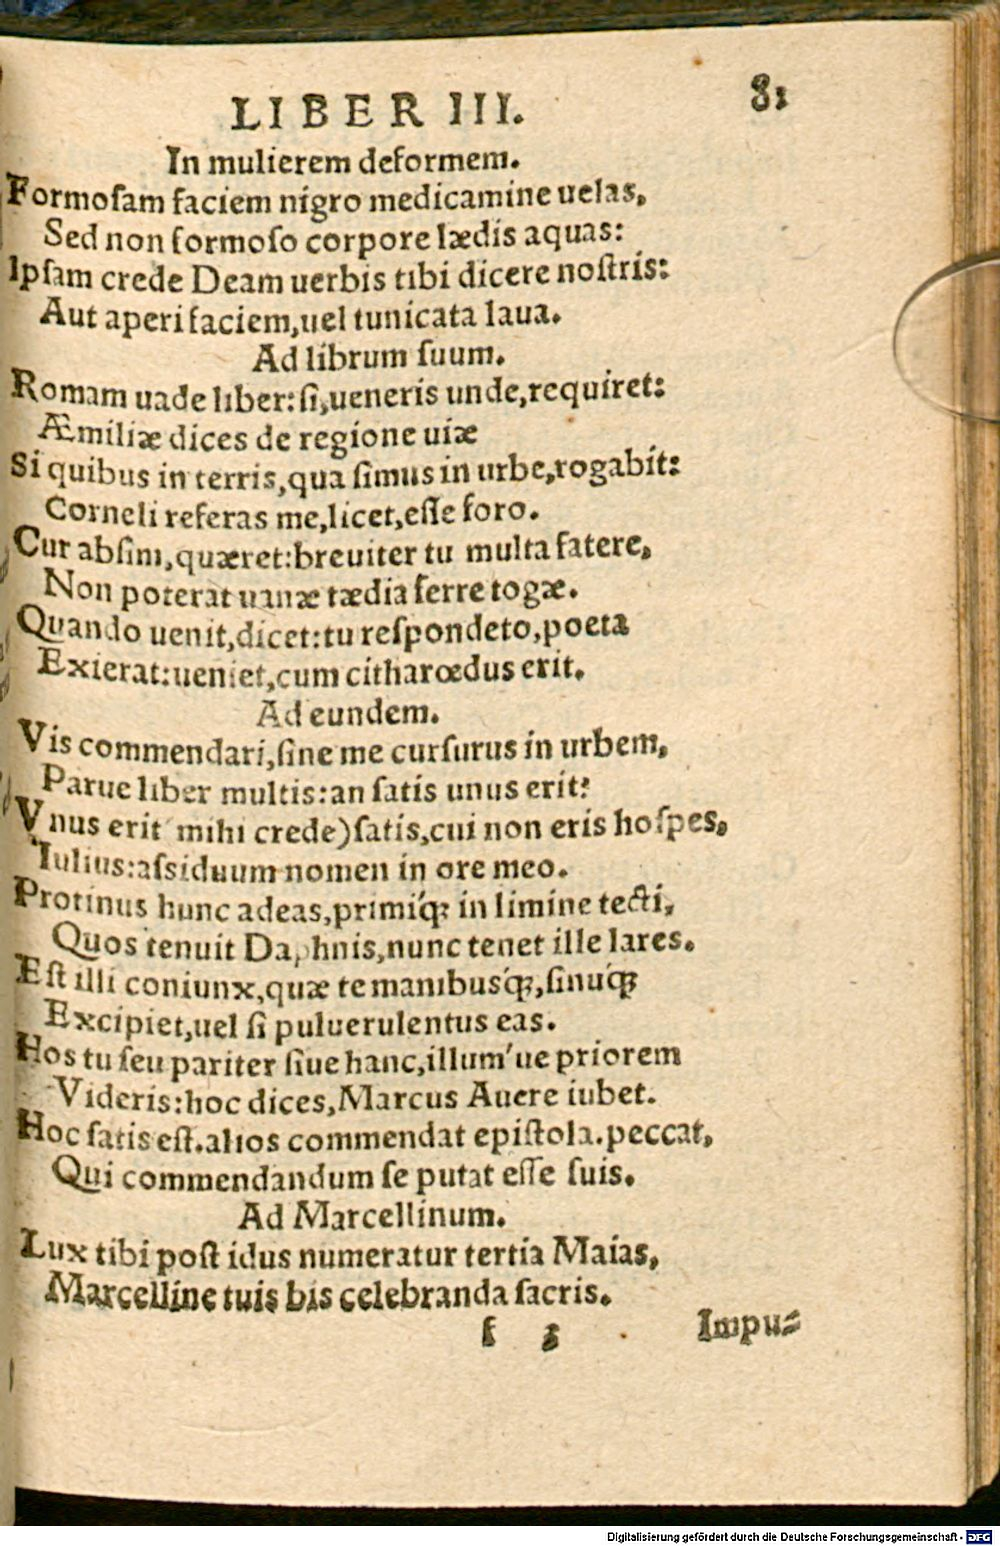 LIBER III. 81
In mulierem deformem.
Formoſam faciem nigro medicamine uelas,
Sed non formoſo corpore lædis aquas:
Ipſam crede Deam uerbis tibi dicere noſtris:
Aut aperi faciem,uel tunicata laua.
Ad librum ſuum.
Romam uade liber:ſi,ueneris unde,requiret:
Æmiliæ dices de regione uiæ
Si quibus in terris,qua ſimus in urbe,rogabit:
Corneli referas me,licet,eſſe foro.
Cur abſim,quæret:breuiter tu multa fatere,
Non poterat uanæ tædia ferre togæ.
Quando uenit,dicet:tu reſpondeto,poeta
Exierat:ueniet,cum citharœdus erit.
Ad eundem.
Vis commendari,ſine me curſurus in urbem,
Parue liber multis:an ſatis unus erit?
Vnus erit mihi crede)ſatis,cui non eris hoſpes,
Iulius:aſsiduum nomen in ore meo.
Protinus hunc adeas,primiq́; in limine tecti,
Quos tenuit Daphnis,nunc tenet ille lares.
Eſt illi coniunx,quæ te manibusq́;,ſinuq́;
Excipiet,uel ſi puluerulentus eas.
Hos tu ſeu pariter ſiue hanc,illum'ue priorem
Videris:hoc dices,Marcus Auere iubet.
Hoc ſatis eſt.alios commendat epiſtola.peccat,
Qui commendandum ſe putat eſſe ſuis.
Ad Marcellinum.
Lux tibi poſt idus numeratur tertia Maias,
Marcelline tuis bis celebranda ſacris.
f 3 Impu⸗
Digitalisierung gefördert durch die Deutsche Forschungsgemeinschaft - DFG